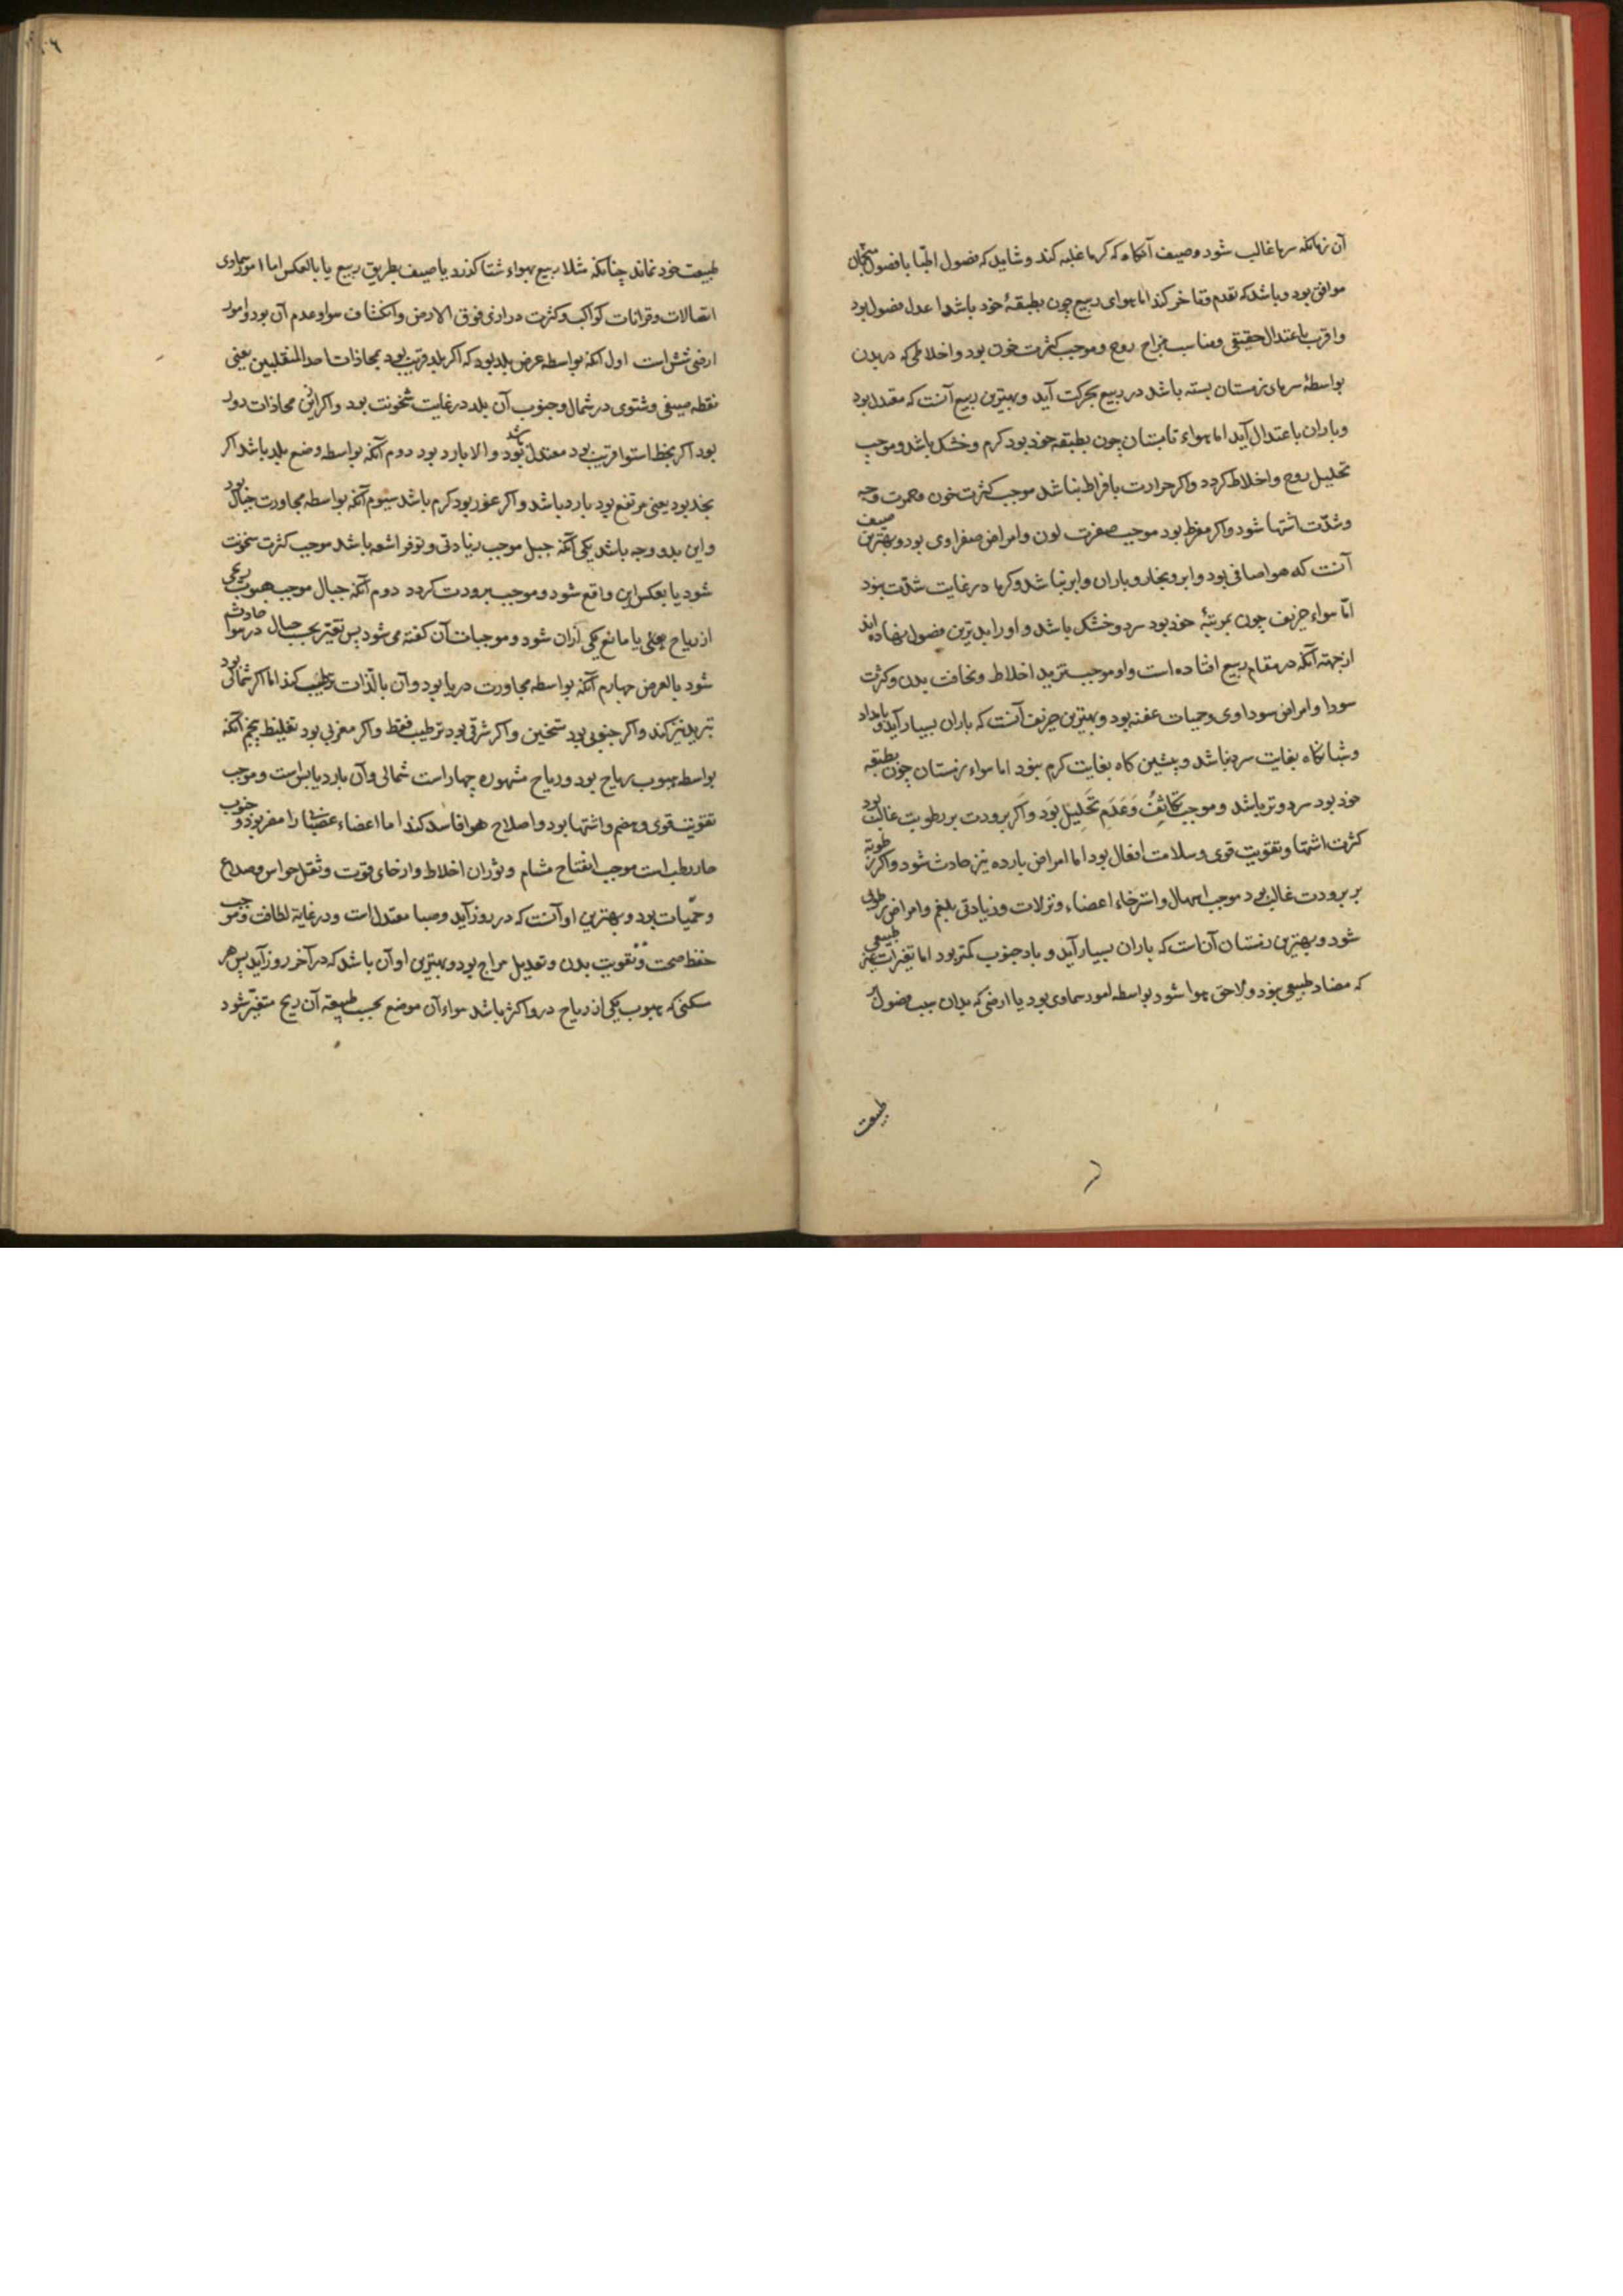 آن زمانکه سرما غالب شود وصیف آنکاه که کرما غلبه کند وشاید که فصول اطبا با فصول منجمان
موافق بود وباشد که تقدم وتاخر کند اما هوای ربیع چون بطبقهٔ خود باشد اعدل فصول بود
واقرب باعتدال حقیقی ومناسب مزاج روح وموجب کثرت خون بود واخلاطی که در بدن
بواسطهٔ سرمای زمستان بسته باشد در ربیع بحرکت آید وبهترین ربیع آنست که معتدل بود
وباران باعتدال آید اما هواء تابستان چون بطبقه خود بود کرم وخشک باشد وموجب
تحلیل روح واخلاط کردد واکر حرارت بافراط نباشد موجب کثرت خون وحمرت وجه
وشدّت اشتها شود واکر مفرط بود موجب صفرت لون وامراض صفراوی بود وبهترین صیف
آنست که هوا صافی بود وابر وبخار وباران وابر نباشد وکرما در غایت شدّت نبود
امّا هواء خریف چون بمرتبهٔ خود بود سرد وخشک باشد واورا بدترین فصول نهاده اند
ازجهته آنکه در مقام ربیع افتاده است واو موجب تزید اخلاط ونحافت بدن وکثرت
سودا وامراض سوداوی وحمیات عفنه بود وبهترین خریف آنست که باران بسیار آید وبامداد
وشبانکاه بغایت سرد نباشد وپیشین کاه بغایت کرم نبود اما هواء زمستان چون بطبقه
خود بود سرد وتر باشد وموجب تکاثف وعدم تحلیل بود واکر برودت بر رطوبت غالب بود
کثرت اشتها وتقویت قوی وسلامت افعال بود اما امراض بارده نیز حادث شود واکر رطوبة
بر برودت غالب بود موجب اسهال واسترخاء اعضاء ونزلات وزیادتی بلغم وامراض رطوبی
شود وبهترین زمستان آنات که باران بسیار آید وباد جنوب کمتر بود اما تغیرات غیر طبیعی
که مضاد طبیعی بود ولاحق هوا شود بواسطه امور سماوی بود یا ارضی که بدان سبب فصول بر
طبیعت
طبیعت خود نماند چنانکه مثلا ربیع بهواء شتا کذرد یا صیف بطریق ربیع یا بالعکس اما امور سماوی
اتصالات وقرانات کواکب وکثرت دراری فوق الارض وانکشاف هوا وعدم آن بود وامور
ارضی شش است اول آنکه بواسطه عرض بلد بود که اکر بلد قریب بود بمحاذات احد المنقلبین یعنی
نقطه صیفی وشتوی در شمال وجنوب آن بلد در غایت سخونت بود واکر ازین محاذات دور
بود اکر بخط استوا قریب بود معتدل بود باشد والا بارد بود دوم آنکه بواسطه وضع بلد باشد اکر
بنجد بود یعنی مرتفع بود بارد باشد واکر غور بود کرم باشد سیوم آنکه بواسطه مجاورت جبال بود
واین بدو وجه باشد یکی آنکه جبل موجب زیادتی وتوفر اشعه باشد موجب کثرت سخونت
شود یا بعکس این واقع شود وموجب برودت کردد دوم آنکه جبال موجب هبوب ریحی
از ریاح یعنی یا مانع یکی ازان شود وموجبات آن کفته می شود پس تغیر بحسب جبال در هوا حادث
شود بالعرض چهارم آنکه بواسطه مجاورت دریا بود وآن بالذات ترطیب کند اما اکر شمالی بود
تبرید نیز کند واکر جنوبی بود تسخین واکر شرقی بود ترطیب فقط واکر مغربی بود تغلیظ پنجم آنکه
بواسطه هبوب ریاح بود وریاح مشهوره چهار است شمالی وآن بارد یابس است وموجب
تقویت قوی وهضم واشتها بود واصلاح هوا فاسد کند اما اعضاء عصبانی را مضر بود وجنوب
حار رطب است موجب انفتاح مسام وثوران اخلاط وارخای قوت وثقل حواس وصداع
وحمّیات بود وبهترین او آنست که در روز آید وصبا معتدل است ودر غایة لطافت وموجب
حفظ صحت وتقویت بدن وتعدیل مزاج بود وبهترین او آن باشد که در آخر روز آید پس هر
سکنی که هبوب یکی از ریاح درو اکثر باشد هواء آن موضع بحسب طبیعة آن ریح متغیّر شود